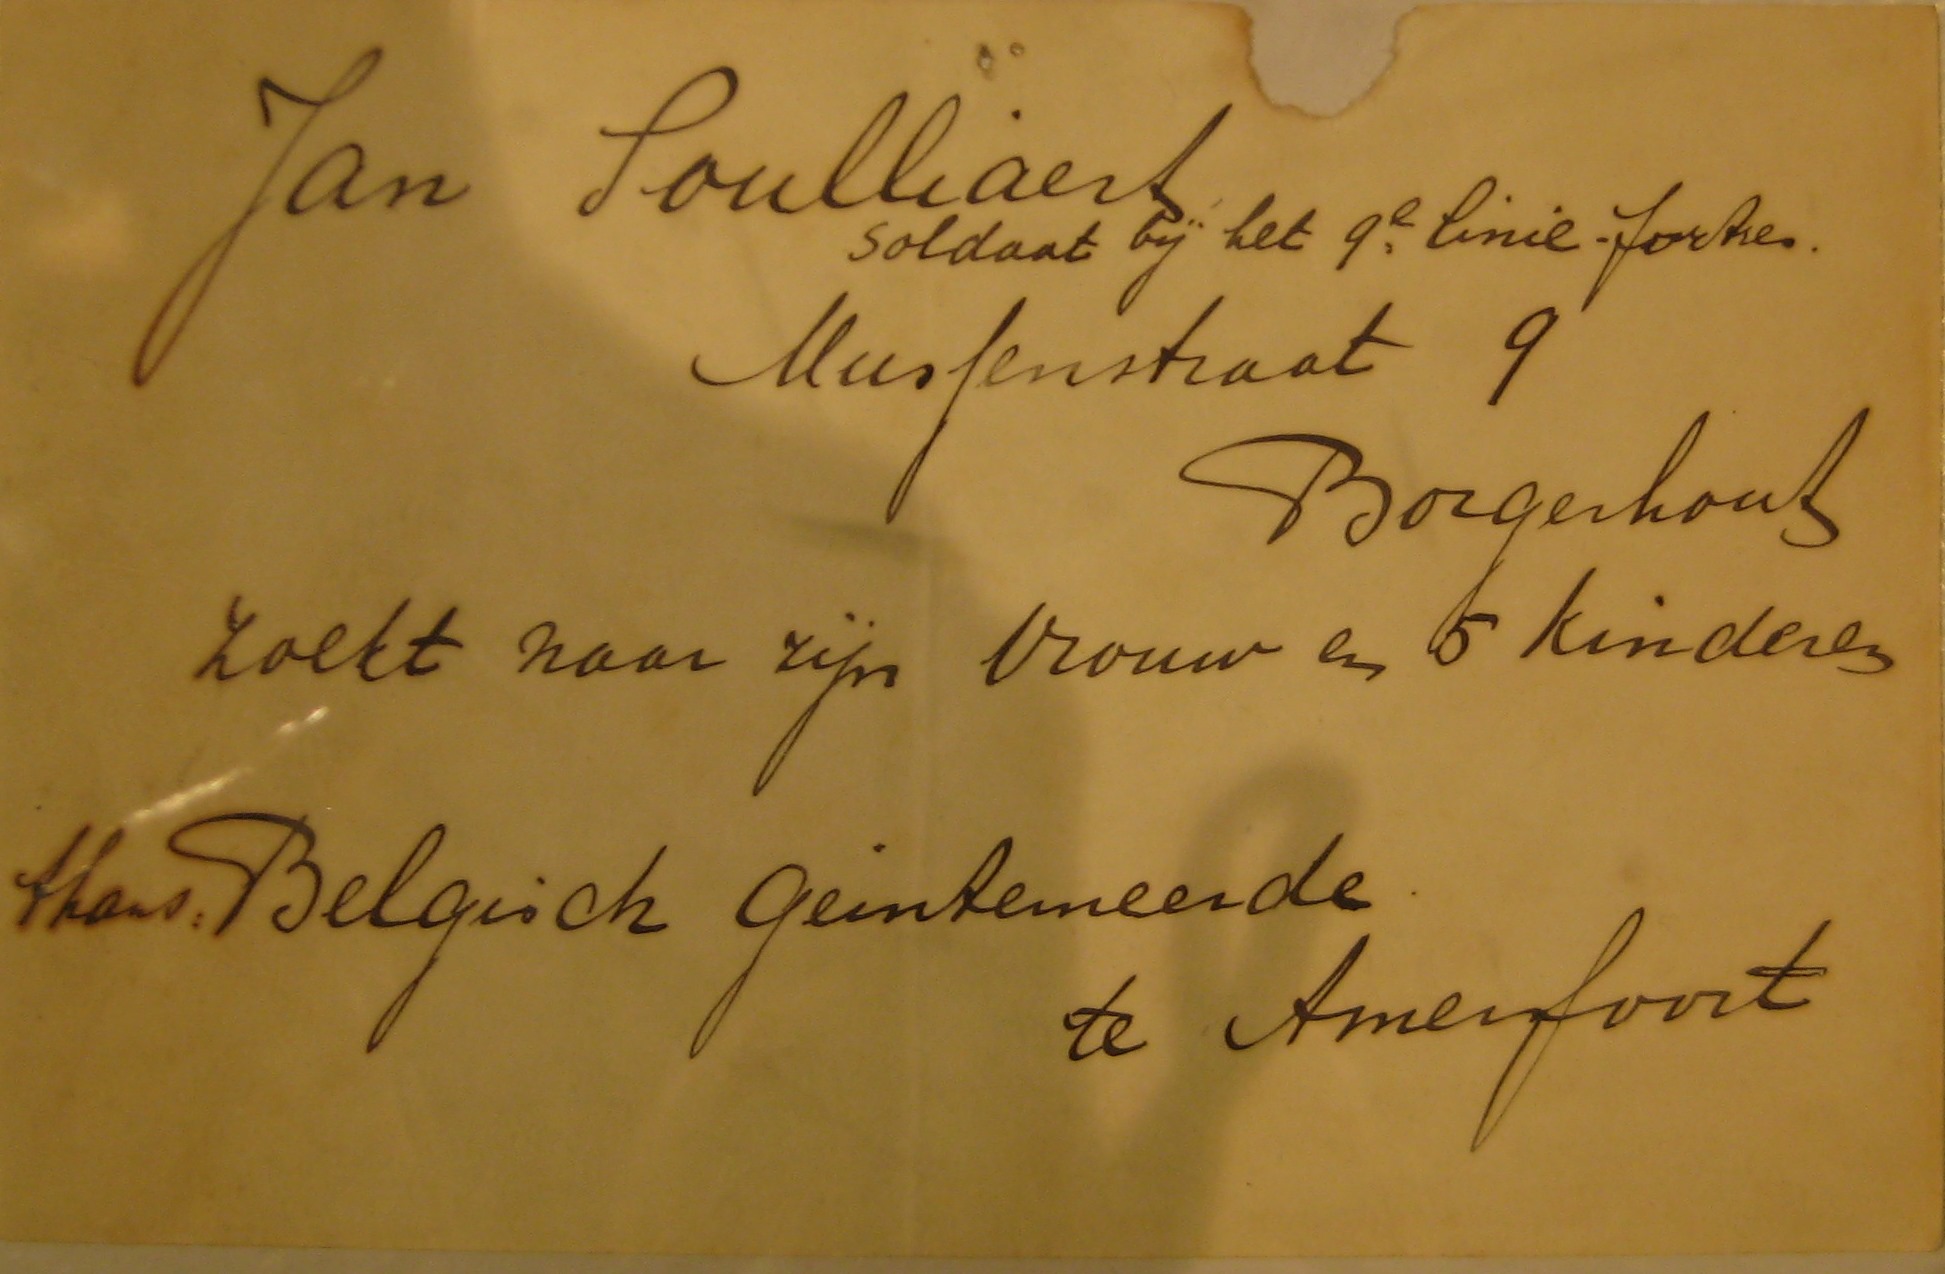 Jan Soulliaert
soldaat bij het 9e linie-fortres.
Mussenstraat 9
Borgerhout
zoekt naar zijn vrouw en 5 kinderen
thans: Belgisch geinterneerde
te Amersfoort